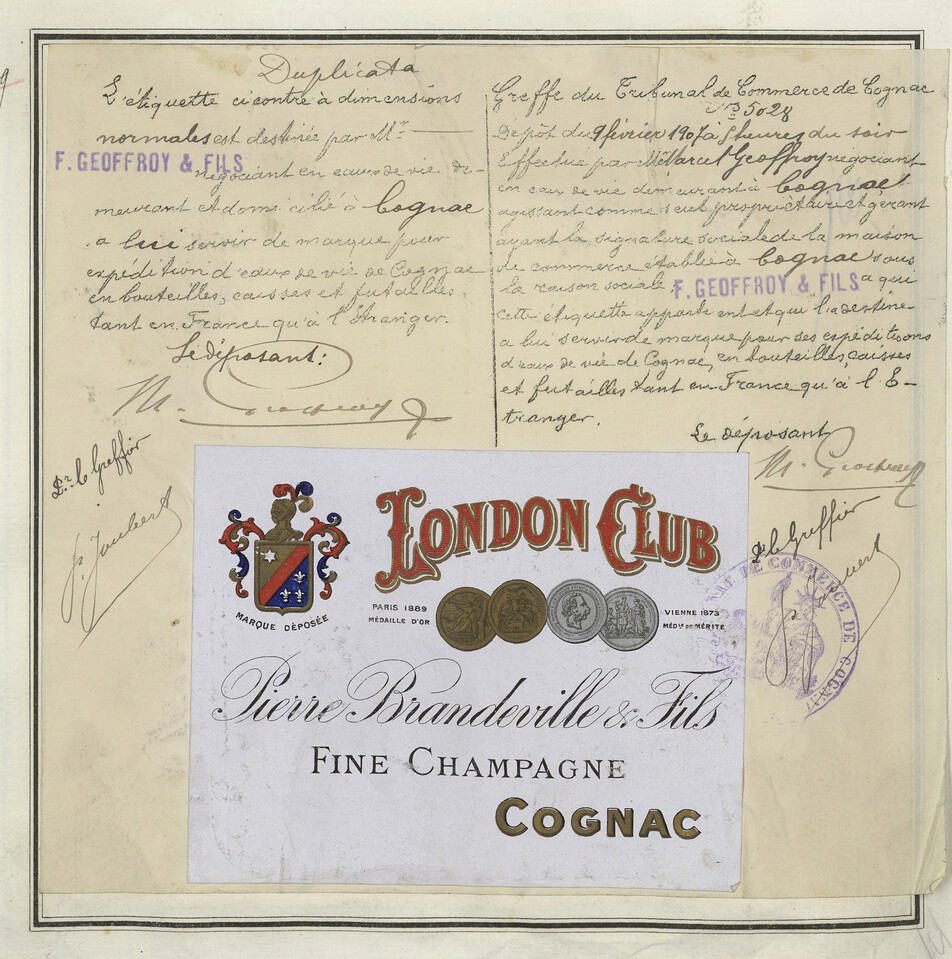 Duplicata
L'étiquette ci contre à dimensions
normales est destinée par Mr
F. GEOFFROY & FILS
négociant en eaux de vie de-
meurant et domicilié à Cognac
a lui servir de marque pour
expédition d'eaux de vie de Cognac
en bouteilles, caisses et futailles
tant en France qu'à l'Etranger.
Le déposant:
M. Geoffroy
Pr. le Greffier
Joubert
Greffe du Tribunal de Commerce de Cognac
No 5028
Dépôt du 9 février 1907 à 5 heures du soir
Effectué par Mr Marcel Geoffroy négociant
en eaux de vie demeurant à Cognac
agissant comme seul propriétaire et gérant
ayant la signature sociale de la maison
de commerce établie à Cognac sous
la raison sociale F. GEOFFROY & FILS a qui
cette étiquette appartient et qui l'a destinée
a lui servir de marque pour ses expéditions
d'eaux de vie de Cognac, en bouteilles, caisses
et futailles tant en France qu'à l'E-
tranger.
Le déposant
M. Geoffroy
Pr. le Greffier
Joubert
DE COMMERCE DE COGNAC
LONDON CLUB
MARQUE DÉPOSÉE
PARIS 1889
MÉDAILLE D'OR
VIENNE 1873
MÉDLE DE MÉRITE
Pierre Brandeville & Fils
FINE CHAMPAGNE
COGNAC